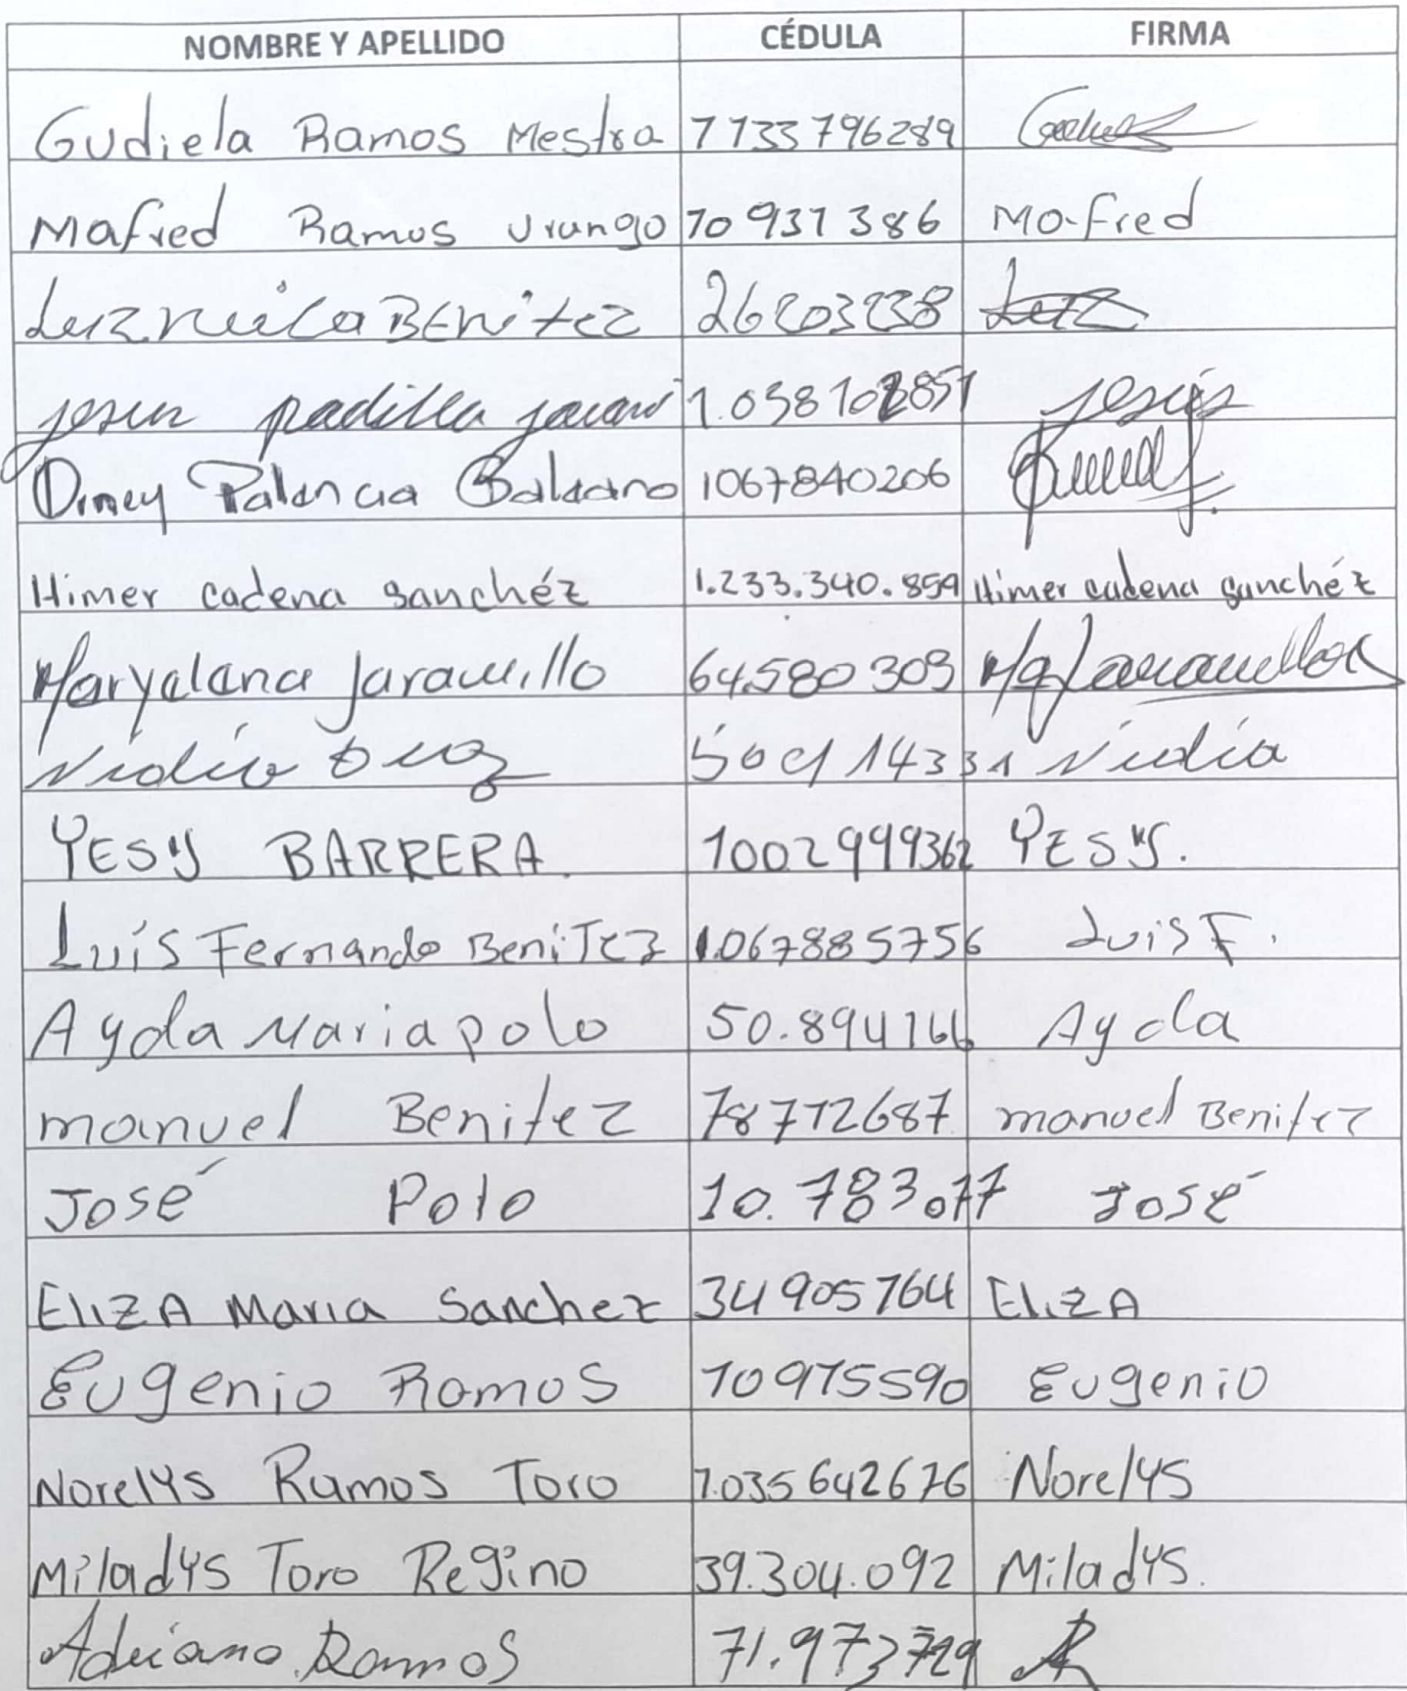 NOMBRE Y APELLIDO CÉDULA FIRMA
Gudiela Ramos Mestra 1133796289
Mafred Ramos Urango 10931386 Mafred
Luz Benitez 26203238 Luz
jesus padilla 1.038102851 jesús
Diney Palencia 1067840206
Himer cadena sanchéz 1.233.340.859 Himer cadena sanchéz
Maryalena Jaramillo 64580309 Ma Jaramillo
Nidia 50914331 Nidia
YESY BARRERA. 1002999362 YESY.
Luis Fernando Benitez 1.067885756 Luis F.
Ayda Maria polo 50.894166 Ayda
manuel Benitez 78712687 manuel Benitez
José Polo 10.783077 José
ElizA Maria Sanchez 34905764 ElizA
Eugenio Ramos 10975590 Eugenio
Norelys Ramos Toro 1.035642676 Norelys
Miladys Toro Regino 39.304.092 Miladys.
Adriano Ramos 71.973729